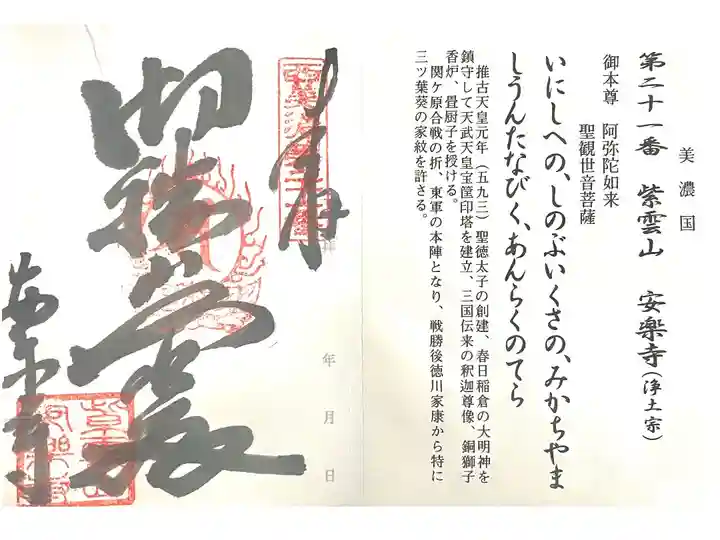 美濃国
第二十一番 紫雲山 安楽寺(浄土宗)
御本尊 阿弥陀如来
聖観世音菩薩
いにしへの、しのぶいくさの、みかちやま
しうんたなびく、あんらくのてら
推古天皇元年(五九三)聖徳太子の創建、春日稲倉の大明神を
鎮守して天武天皇宝篋印塔を建立、三国伝来の釈迦尊像、銅獅子
香炉、畳厨子を授ける。
関ケ原合戦の折、東軍の本陣となり、戦勝後徳川家康から特に
三ツ葉葵の家紋を許さる。
奉
年月日
安楽寺